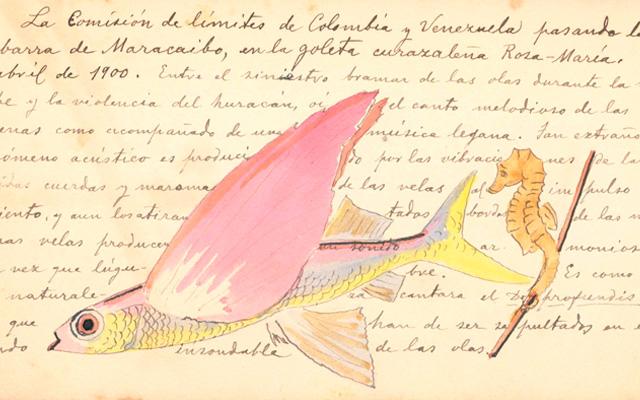 La Comisión de límites de Colombia y Venezuela pasando la
barra de Maracaibo, en la goleta curazaleña Rosa-María.
abril de 1900. Entre el siniestro bramar de las olas durante la
y la violencia del huracán, el canto melodioso de las
enas como acompañado de una música lejana. Tan extraño
ómeno acústico es produci por las vibracio nes de la
cuerdas y maroma de las velas im pulso
iento, y aun los atiran tadas bordas de las
as velas producen un sonido ar monioso
vez que lúgu- bre. Es como
naturale- za cantara el De profundis
que han de ser se pultados en
do insondable de las olas.